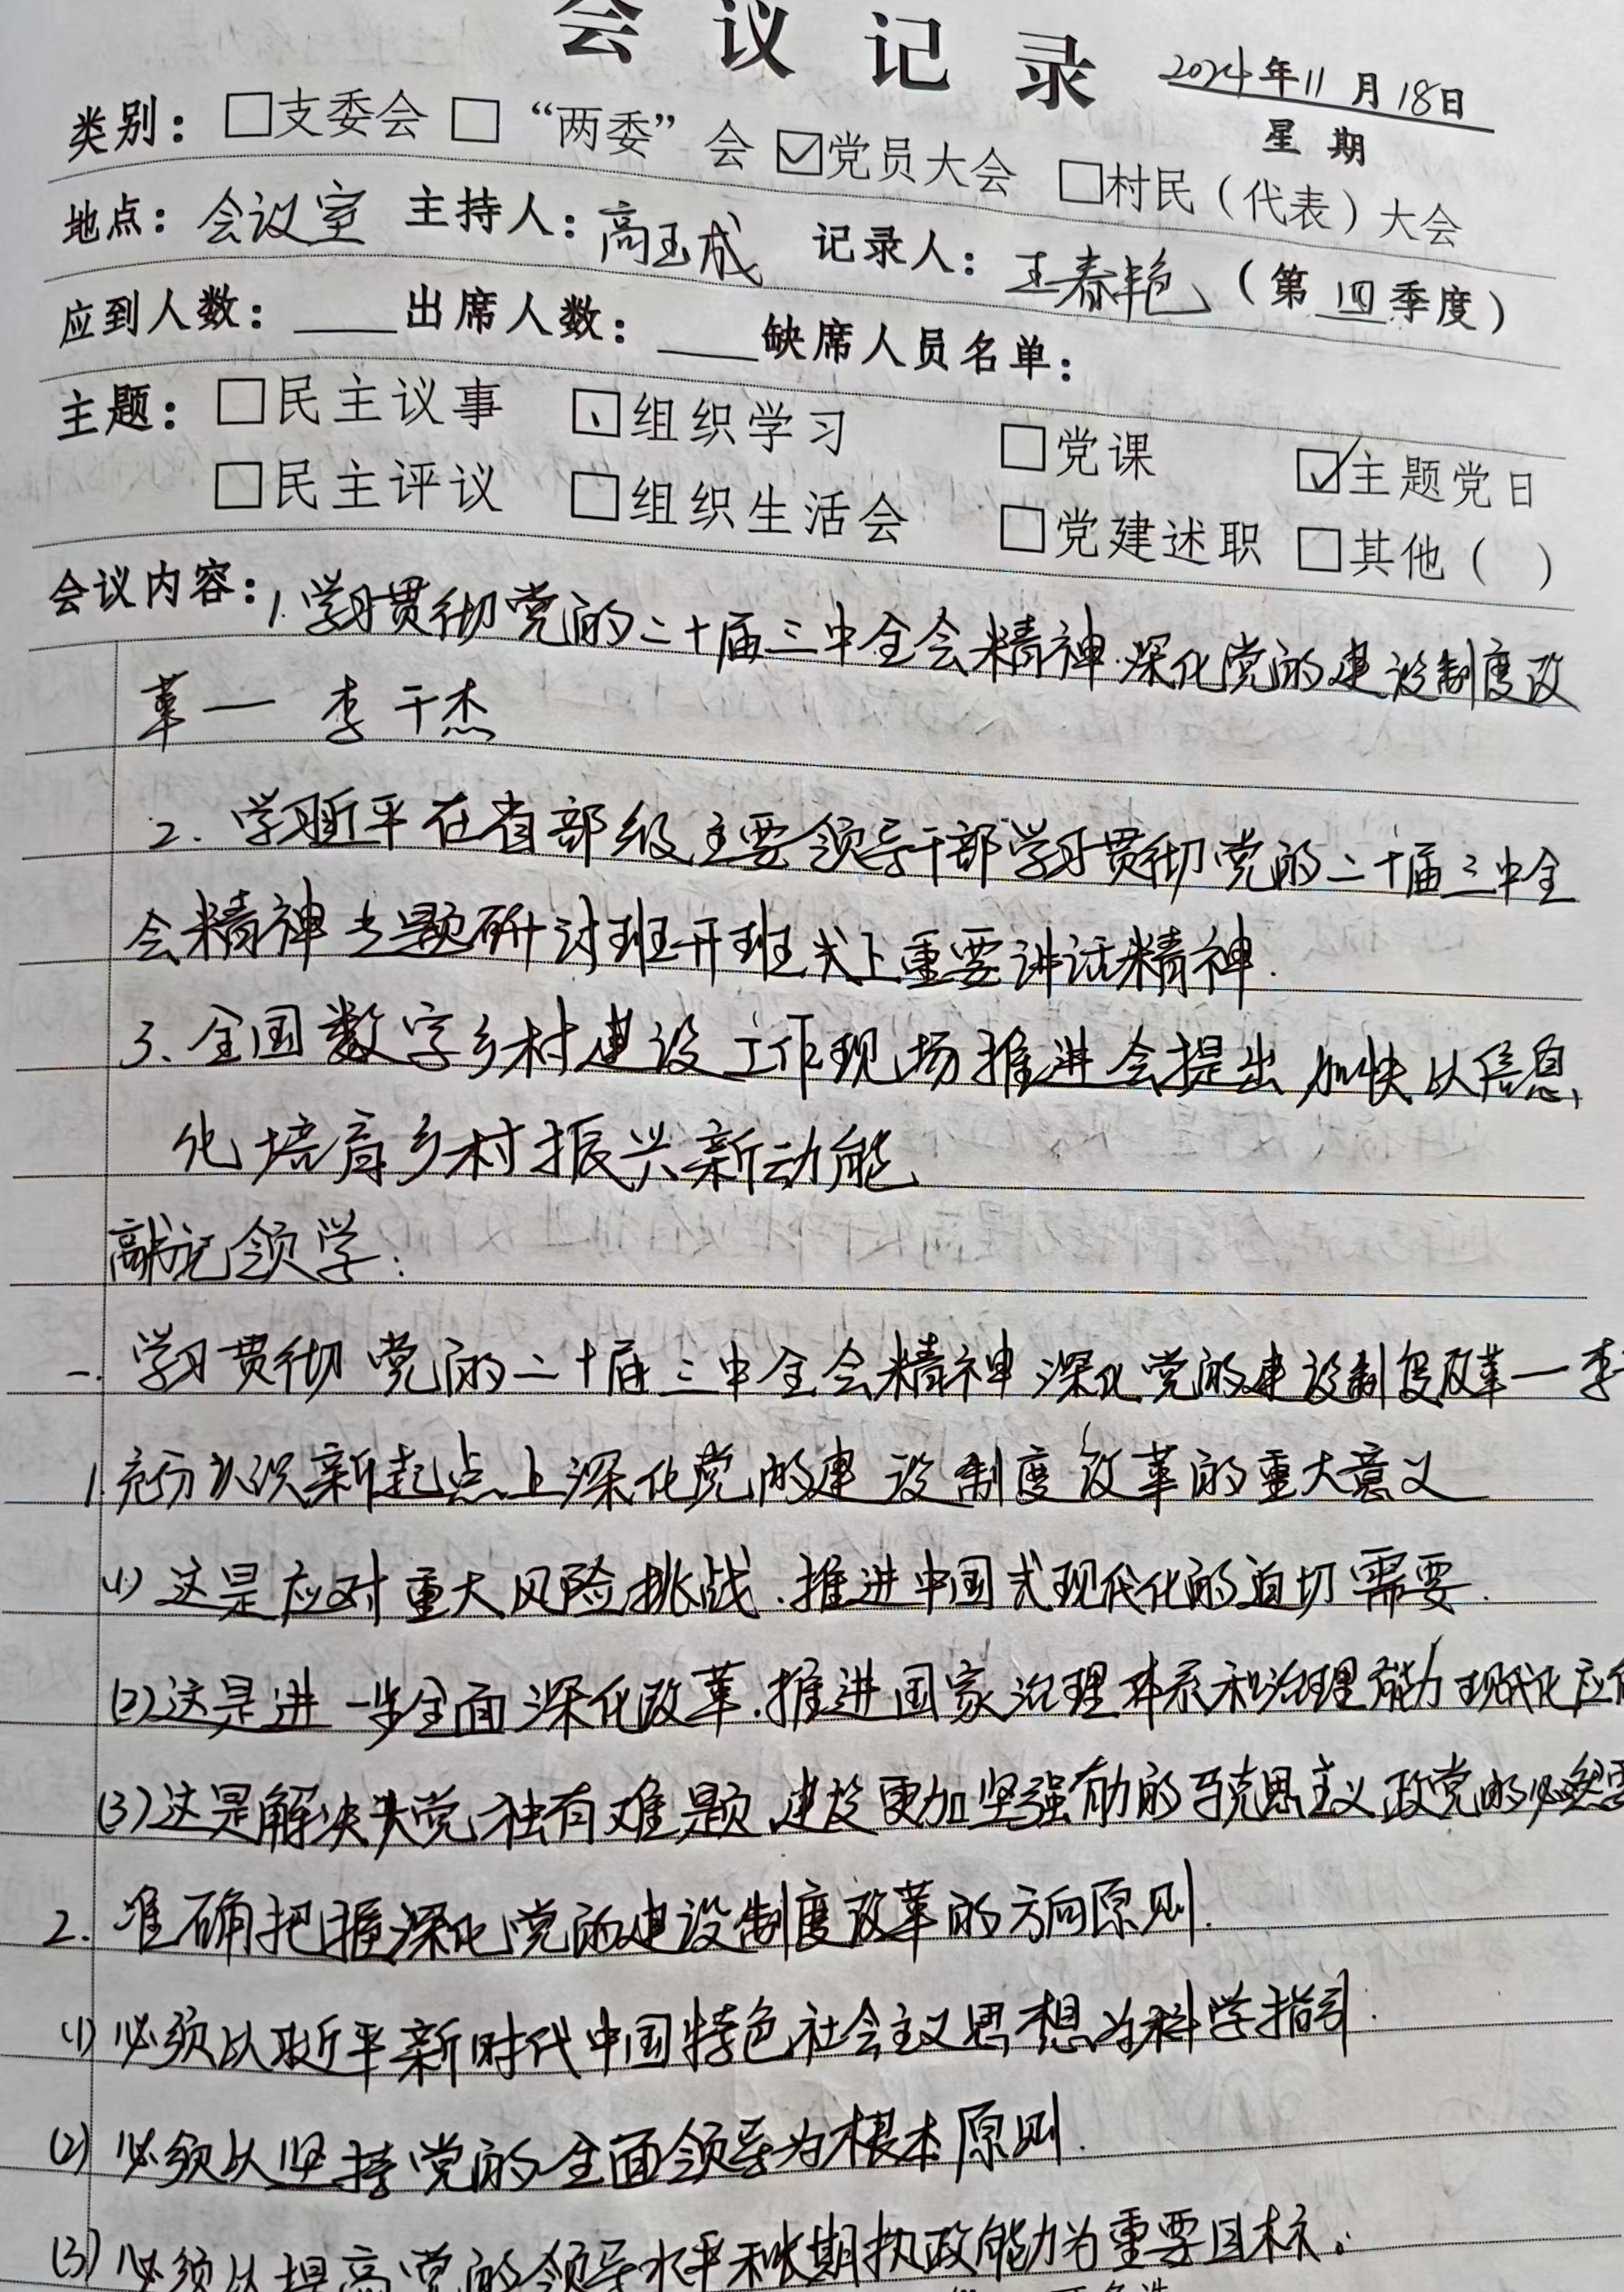 会议记录
2024年11月18日
星期
类别：□支委会 □“两委”会 ☑党员大会 □村民（代表）大会
地点：会议室 主持人：高玉成 记录人：王春艳（第四季度）
应到人数：____出席人数：____缺席人员名单：
主题：□民主议事 □组织学习 □党课 ☑主题党日
□民主评议 □组织生活会 □党建述职 □其他（ ）
会议内容：1.学习贯彻党的二十届三中全会精神.深化党的建设制度改
革一 李干杰
2.学习近平在省部级主要领导干部学习贯彻党的二十届三中全
会精神专题研讨班开班式上重要讲话精神.
3、全国数字乡村建设工作现场推进会提出 加快以信息
化培育乡村振兴新动能
高书记领学：
一.学习贯彻党的二十届三中全会精神 深化党的建设制度改革一李
1.充分认识新起点上深化党的建设制度改革的重大意义
(1)这是应对重大风险挑战.推进中国式现代化的迫切需要.
(2)这是进一步全面深化改革.推进国家治理体系和治理能力现代化应
(3)这是解决大党独有难题、建设更加坚强有力的马克思主义政党的必然
2.准确把握深化党的建设制度改革的方向原则.
(1)必须以习近平新时代中国特色社会主义思想为科学指引.
(2)必须以坚持党的全面领导为根本原则.
(3)必须以提高党的领导水平和长期执政能力为重要目标.